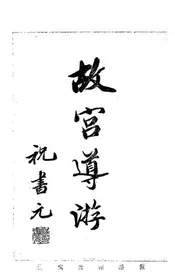 故宮導游
祝書元